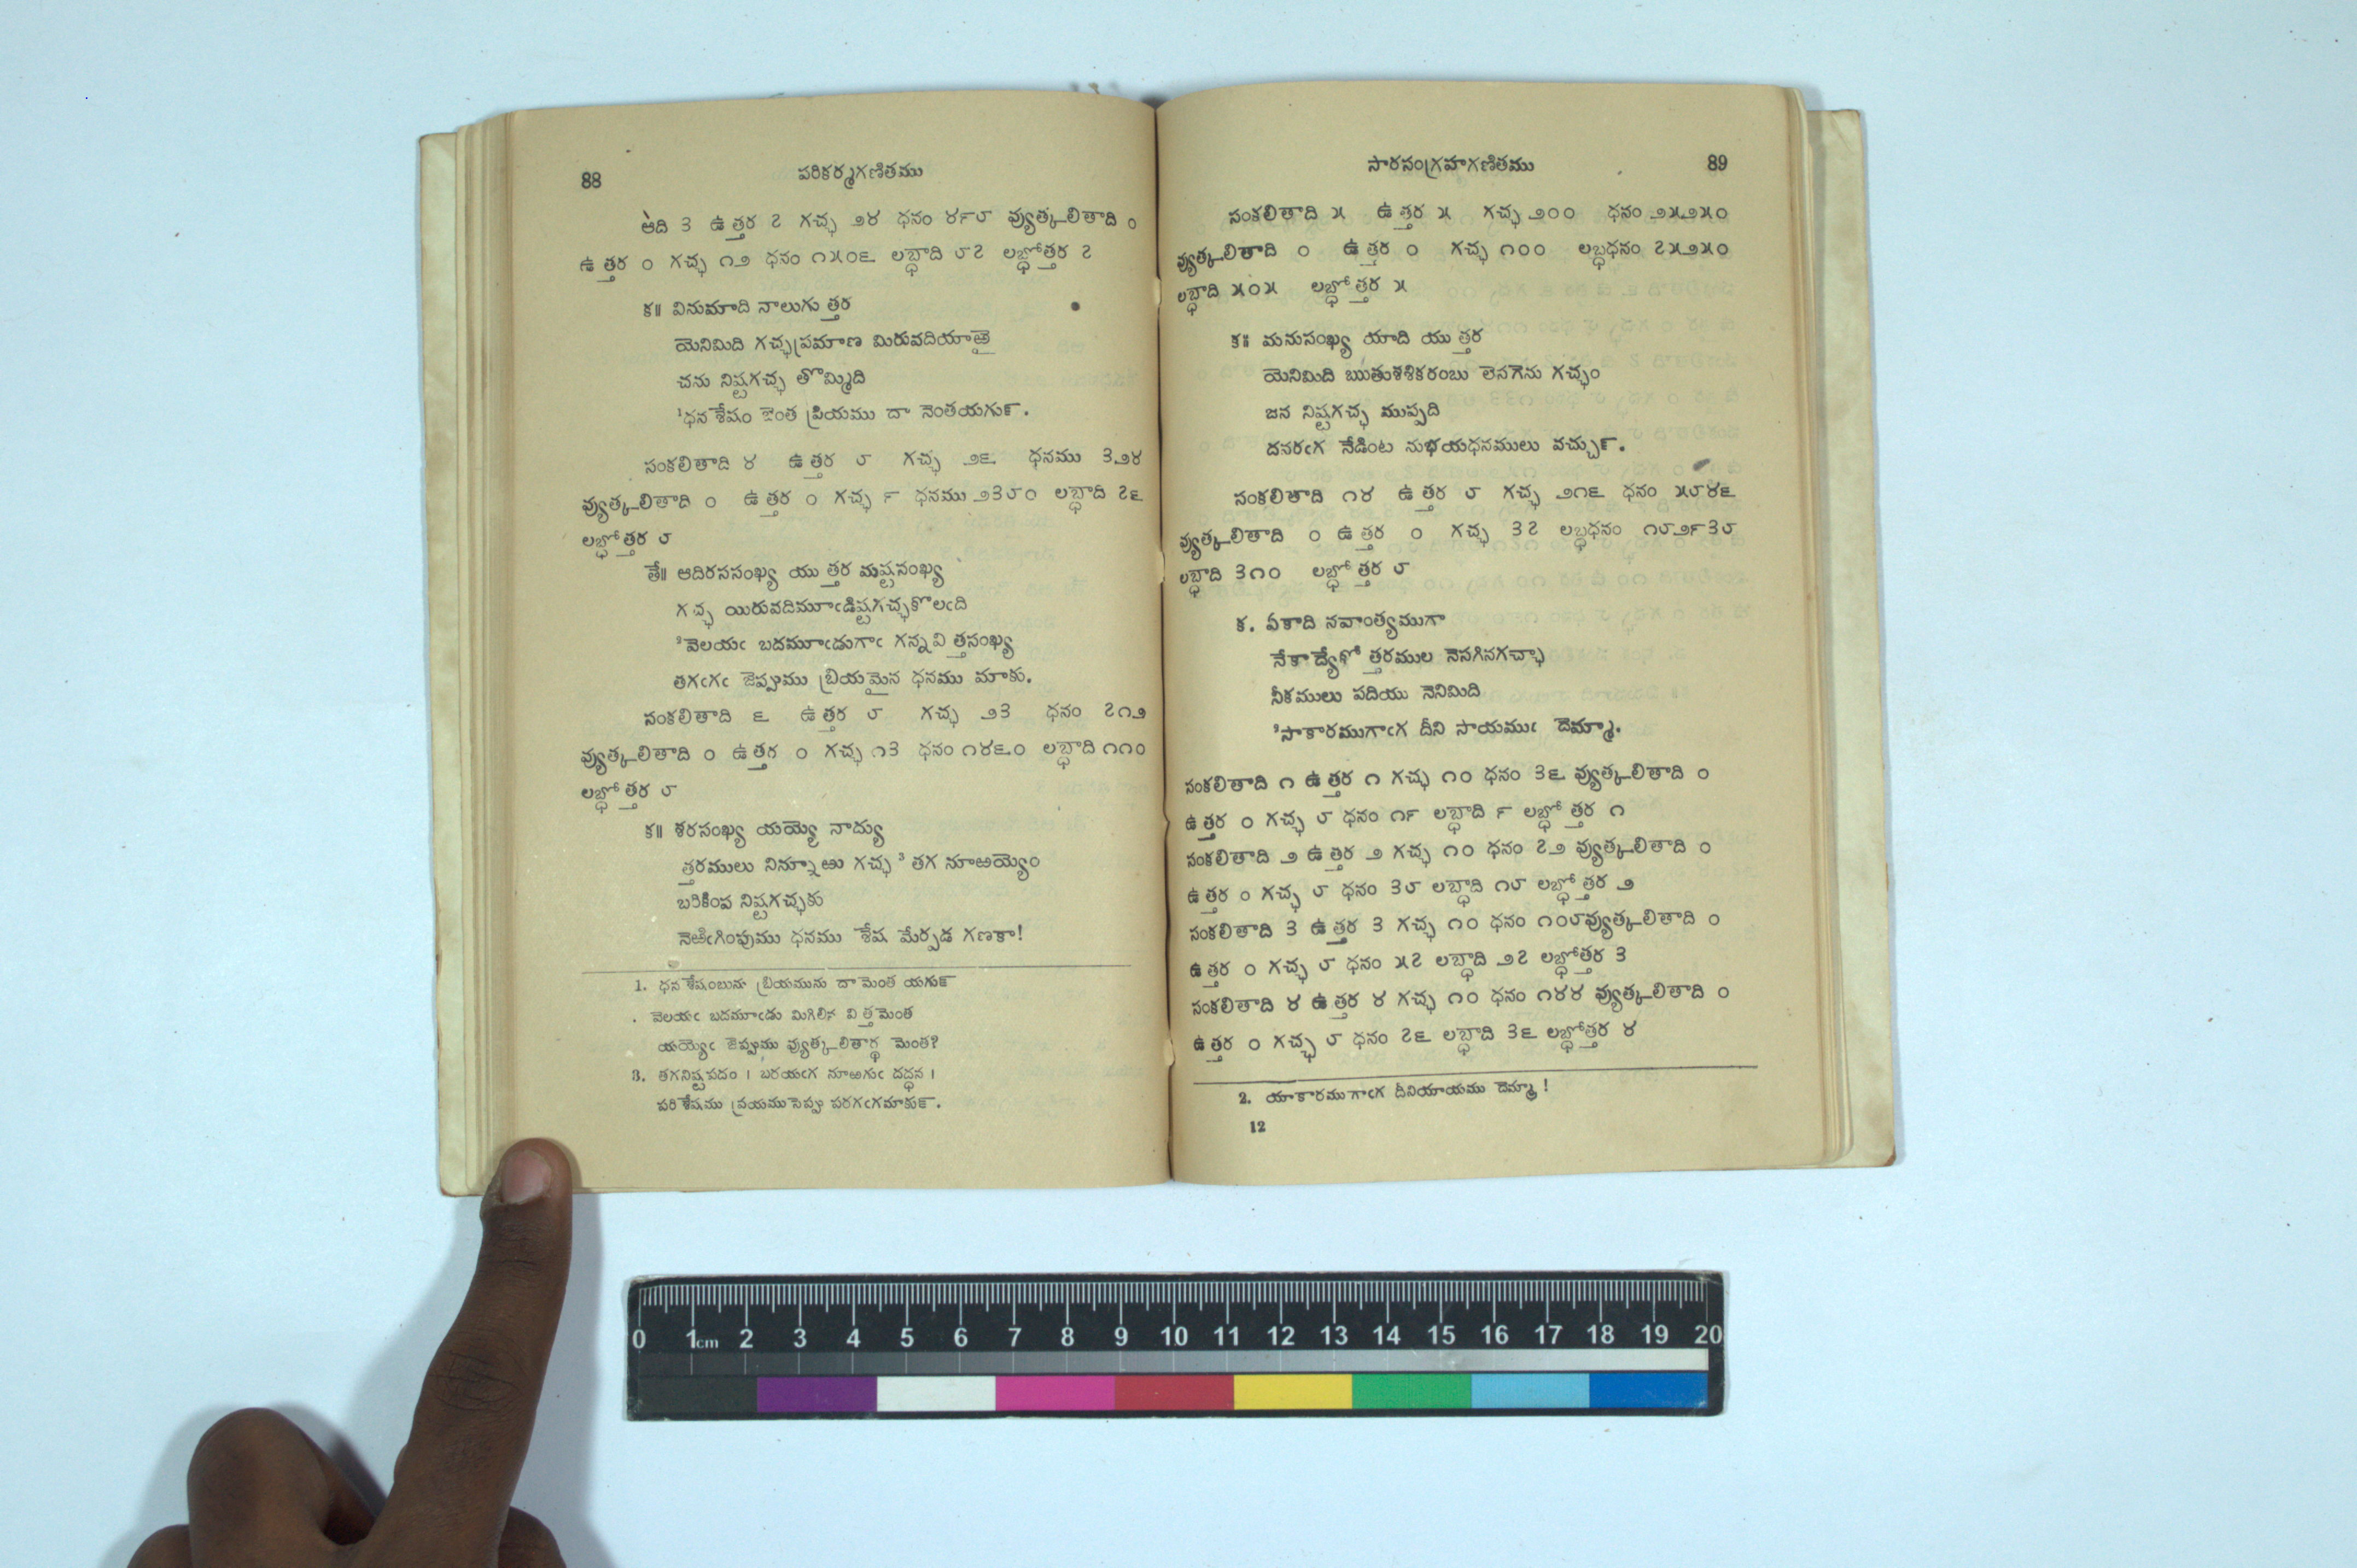 88
పరికర్మగణితము
ఆది ౩ ఉత్తర ౭ గచ్ఛ ౨౪ ధనం ౪౯౮ వ్యుత్కలితాది ౦
ఉత్తర ౦ గచ్ఛ ౧౨ ధనం ౧౫౦౬ లబ్ధాది ౮౭ లబ్ధోత్తర ౭
క॥ వినుమాది నాలుగు త్తర
యెనిమిది గచ్ఛప్రమాణ మిరువదియాఱై
చను నిష్టగచ్ఛ తొమ్మిది
¹ధన శేషం బెంత ప్రియము దా నెంతయగు౯.
సంకలితాది ౪ ఉత్తర ౮ గచ్ఛ ౨౬ ధనము ౩౨౪
వ్యుత్కలితాది ౦ ఉత్తర ౦ గచ్ఛ ౯ ధనము ౨౩౮౦ లబ్ధాది ౭౬
లబ్ధోత్తర ౮
తే॥ ఆదిరససంఖ్య యు త్తర మష్టసంఖ్య
గచ్ఛ యిరువదిమూఁడిష్టగచ్ఛకొలఁది
²వెలయఁ బదమూఁడుగాఁ గన్న వి త్తసంఖ్య
తగఁగఁ జెప్పుము బ్రియమైన ధనము మాకు.
సంకలితాది ౬ ఉత్తర ౮ గచ్ఛ ౨౩ ధనం ౭౧౨
వ్యుత్కలితాది ౦ ఉత్తర ౦ గచ్ఛ ౧౩ ధనం ౧౪౬౦ లబ్ధాది ౧౧౦
లబ్ధోత్తర ౮
క॥ శరసంఖ్య యయ్యె నాద్యు
త్తరములు నిన్నూఱు గచ్ఛ ³ తగ నూఱయ్యెం
బరికింప నిష్టగచ్ఛకు
నెఱిఁగింపుము ధనము శేష మేర్పడ గణకా!
1. ధన శేషంబును బ్రియమును దా మెంత యగు౯
. వెలయఁ బదమూఁడు మిగిలిన వి త్తమెంత
యయ్యెఁ జెప్పుము వ్యుత్కలితార్థ మెంత?
3. తగనిష్టపదం । బరయఁగ నూఱగుఁ దద్ధన ।
పరి శేషము వ్రయము సెప్పు పరగఁగమాకు౯.
సారసంగ్రహగణితము
89
సంకలితాది ౫ ఉత్తర ౫ గచ్ఛ ౨౦౦ ధనం ౨౫౨౫౦
వ్యుత్కలితాది ౦ ఉత్తర ౦ గచ్ఛ ౧౦౦ లబ్ధధనం ౭౫౨౫౦
లబ్ధాది ౫౦౫ లబ్ధోత్తర ౫
క॥ మనుసంఖ్య యాది యు త్తర
యెనిమిది ఋతుశశికరంబు లెసగెను గచ్ఛం
జన నిష్టగచ్ఛ ముప్పది
దనరఁగ నేడింట నుభయధనములు వచ్చు౯.
సంకలితాది ౧౪ ఉత్తర ౮ గచ్ఛ ౨౧౬ ధనం ౫౮౪౬
వ్యుత్కలితాది ౦ ఉత్తర ౦ గచ్ఛ ౩౭ లబ్ధధనం ౧౮౨౯౩౮
లబ్ధాది ౩౧౦ లబ్ధోత్తర ౮
క. ఏకాది నవాంత్యముగా
నేకాద్యేకో త్తరముల నెసగినగచ్ఛా
నీకములు పదియు నెనిమిది
²సాకారముగాఁగ దీని సాయముఁ దెమ్మా.
సంకలితాది ౧ ఉత్తర ౧ గచ్ఛ ౧౦ ధనం ౩౬ వ్యుత్కలితాది ౦
ఉత్తర ౦ గచ్ఛ ౮ ధనం ౧౯ లబ్ధాది ౯ లబ్ధోత్తర ౧
సంకలితాది ౨ ఉత్తర ౨ గచ్ఛ ౧౦ ధనం ౭౨ వ్యుత్కలితాది ౦
ఉత్తర ౦ గచ్ఛ ౮ ధనం ౩౮ లబ్ధాది ౧౮ లబ్ధోత్తర ౨
సంకలితాది ౩ ఉత్తర ౩ గచ్ఛ ౧౦ ధనం ౧౦౮వ్యుత్కలితాది ౦
ఉత్తర ౦ గచ్ఛ ౮ ధనం ౫౭ లబ్ధాది ౨౭ లబ్ధోత్తర ౩
సంకలితాది ౪ ఉత్తర ౪ గచ్ఛ ౧౦ ధనం ౧౪౪ వ్యుత్కలితాది ౦
ఉత్తర ౦ గచ్ఛ ౮ ధనం ౭౬ లబ్ధాది ౩౬ లబ్ధోత్తర ౪
2. యాకారముగాఁగ దీనియాయము దెమ్మా!
12
0 1cm 2 3 4 5 6 7 8 9 10 11 12 13 14 15 16 17 18 19 20